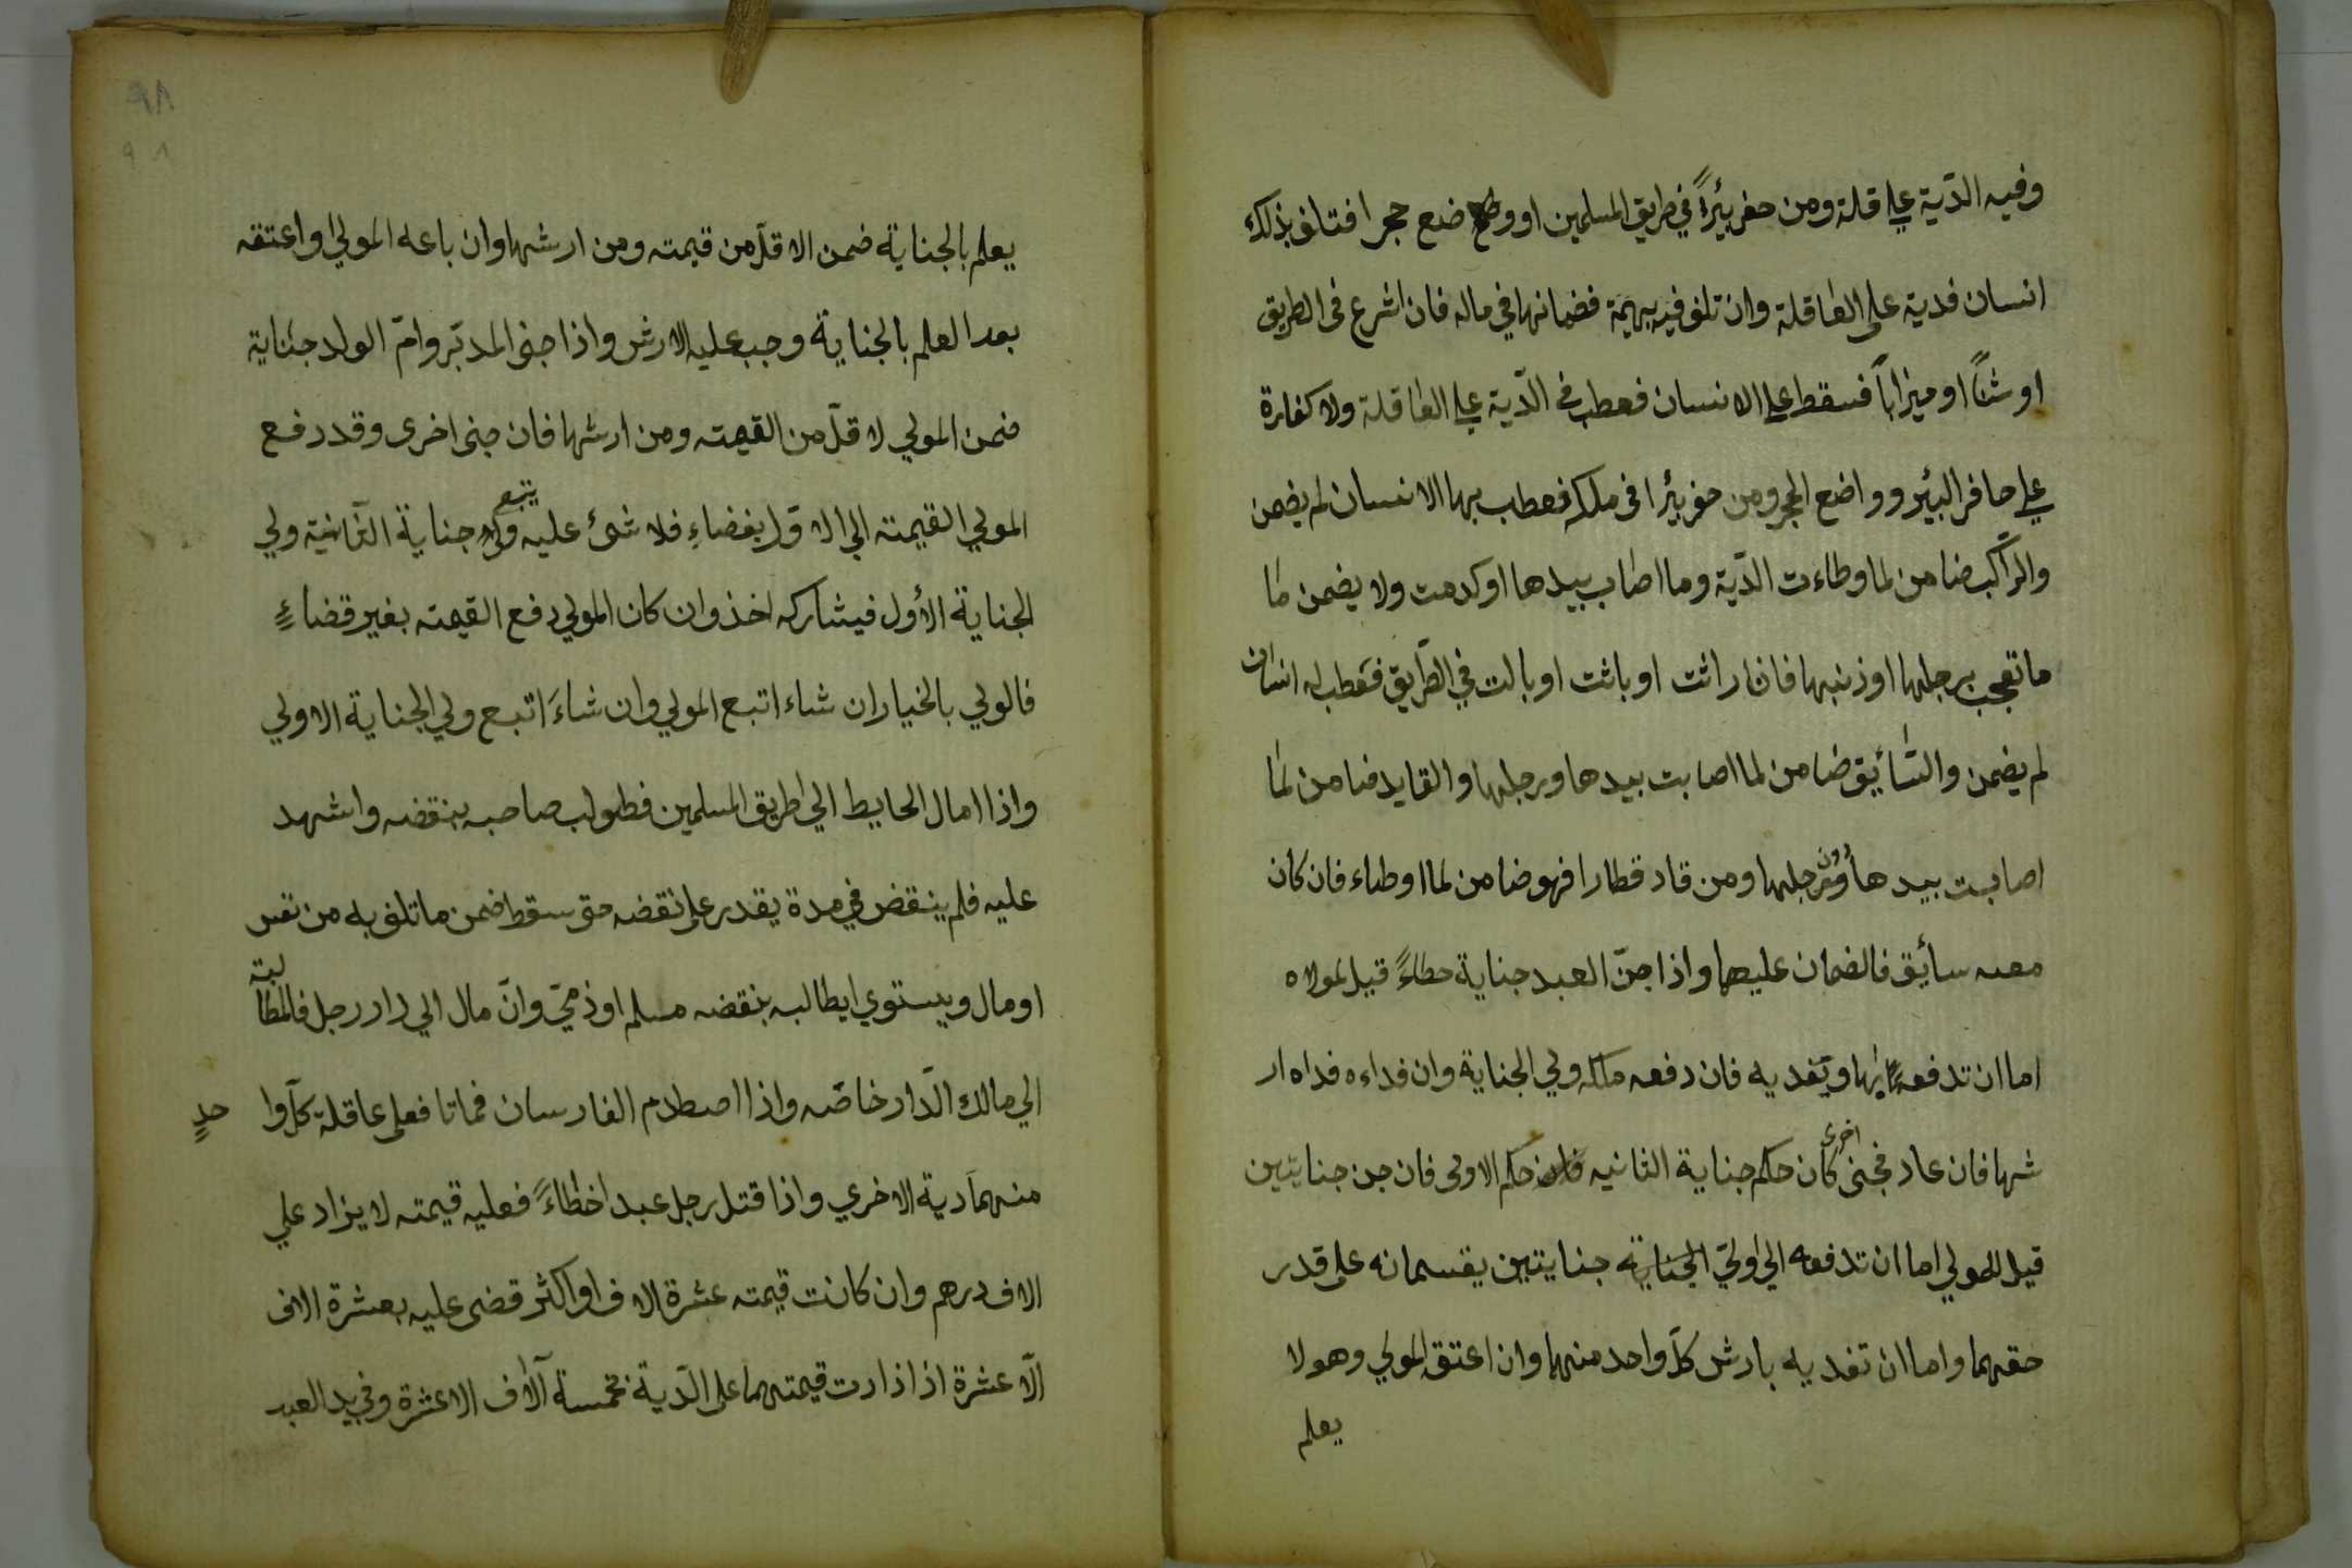 وفيه الدّية علي قلة ومن حفر بئيراً في طريق المسلمين او وضع حجر افتلف بذلك
انسان فدية على العاقلة وان تلف فيه بهيمة فضمانها في ماله فان اشرع في الطريق
او شناً او ميزاباً فسقط علي الانسان فعطب في الدّية علي العاقلة ولا كفارة
علي حافر البئير وواضع الحجر ومن حفر بئيرا في ملكه فعطب بها الانسان لم يضمن
والراكب ضامن لما وطاءت الدّبة وما اصاب بيدها او كدمت ولا يضمن ما
ما تعجب برجلها او ذنبها فان راثت او باثت او بالت في الطّريق فعطب له انسان
لم يضمن والسّائيق ضامن لما اصابت بيدها ورجلها والقايد ضامن لما
اصابت بيدها دون رجلها ومن قاد قطارا فهو ضامن لما اوطاء فان كان
معه سائيق فالضمان عليهما واذا جنّ العبد جناية خطاءً قيل لمولاه
اما ان تدفعه بها وتفديه فان دفعه ملكه ولي الجناية وان فداءه فداه ار
شها فان عاد فجنى اخرى كان حكم جناية الثانيه حكم الاولى فان جن جنايتين
قيل للمولي اما ان تدفعه الي ولّي الجناية جنايتين يقسمانه على قدر
حقهما واما ان تفديه بارش كلّ واحد منهما وان اعتق المولي وهو لا
يعلم
٩٨
٩٨
يعلم بالجناية ضمن الاقلّ من قيمته ومن ارشها وان باعه المولي او اعتقه
بعد العلم بالجناية وجب عليه الارش واذا جنى المدبّر وامّ الولد جناية
ضمن المولي لاقلّ من القيمته ومن ارشها فان جنى اخرى وقد دفع
المولي القيمته الي الاوّل بغضاءٍ فلا شئ عليه ويتبع جناية الثّانية ولي
الجناية الأول فيشاركه اخذ وان كان المولي دفع القيمته بغير قضاءٍ
فالولي بالخيار ان شاء اتبع المولي وان شاءَ اتبع ولي الجناية الاولي
واذا امال الحايط الي طريق المسلمين فطولب صاحبه بنقضه واشهد
عليه فلم ينقض في مدة يقدر على نقضه حتى سقط ضمن ما تلف به من نفس
او مال ويستوي ايطالبه بنقضه مسلم او ذمّي وانّ مال الي دار رجل فالمطالبته
الي مالك الّدار خاصّه واذا اصطدم الفارسان فماتا فعلى عاقلة كلّ وا حدٍ
منهما دية الاخري واذا قتل رجل عبدا خطاءً فعليه قيمته لا يزاد علي
الاف درهم وان كانت قيمته عشرة الاف او اكثر قضى عليه بعشرة الاف
الّا عشرة اذا ذادت قيمتهما على الدّية فخمسة آلاف الا عشرة وفي يد العبد